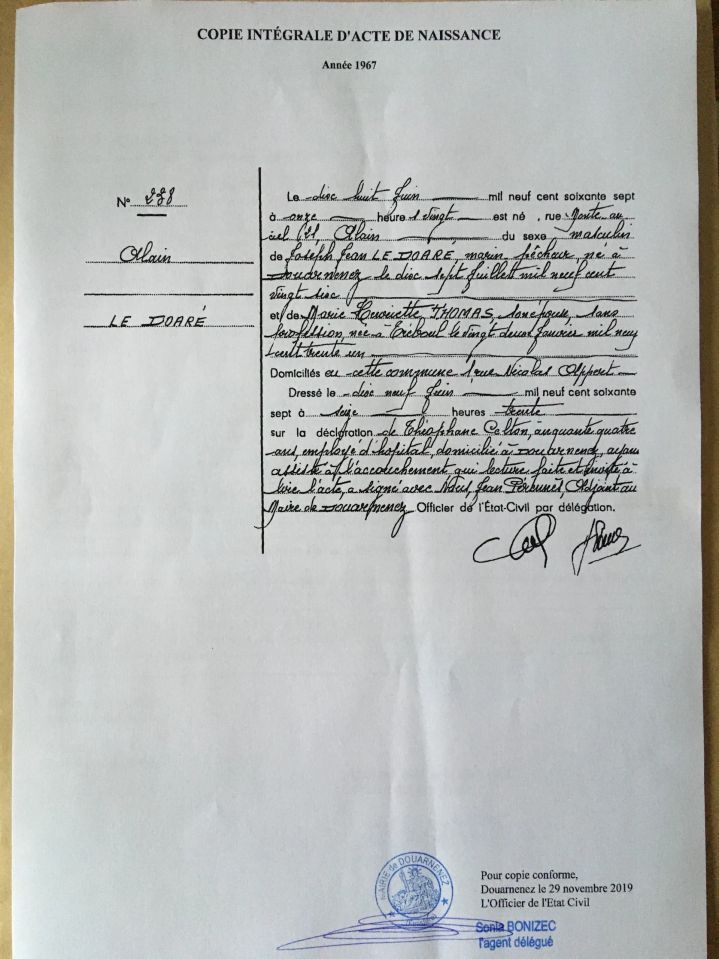 COPIE INTÉGRALE D'ACTE DE NAISSANCE
Année 1967
N° 238
Alain
LE DOARÉ
Le dix huit Juin mil neuf cent soixante sept
à onze heure s vingt est né , rue Monte au
ciel Alain du sexe masculin
de Joseph Jean LE DOARÉ, marin pêcheur, né à
DOUARNENEZ le dix sept Juillet mil neuf cent
vingt six
et de Marie Henriette THOMAS, son épouse, sans
profession, née à Tréboul le vingt deux Janvier mil neuf
cent trente un
Domiciliés en cette commune rue Nicolas Appert
Dressé le dix neuf Juin mil neuf cent soixante
sept à seize heures trente
sur la déclaration de Théophane Colton, cinquante quatre
ans, employé d'hopital, domicilié à DOUARNENEZ, ayant
assisté à l'accouchement qui lecture faite et invité à
lire l'acte, a signé avec Nous, Jean Adjoint au
Maire de DOUARNENEZ Officier de l'État-Civil par délégation.
MAIRIE de DOUARNENEZ
Pour copie conforme,
Douarnenez le 29 novembre 2019
L'Officier de l'Etat Civil
Sonia BONIZEC
l'agent délégué